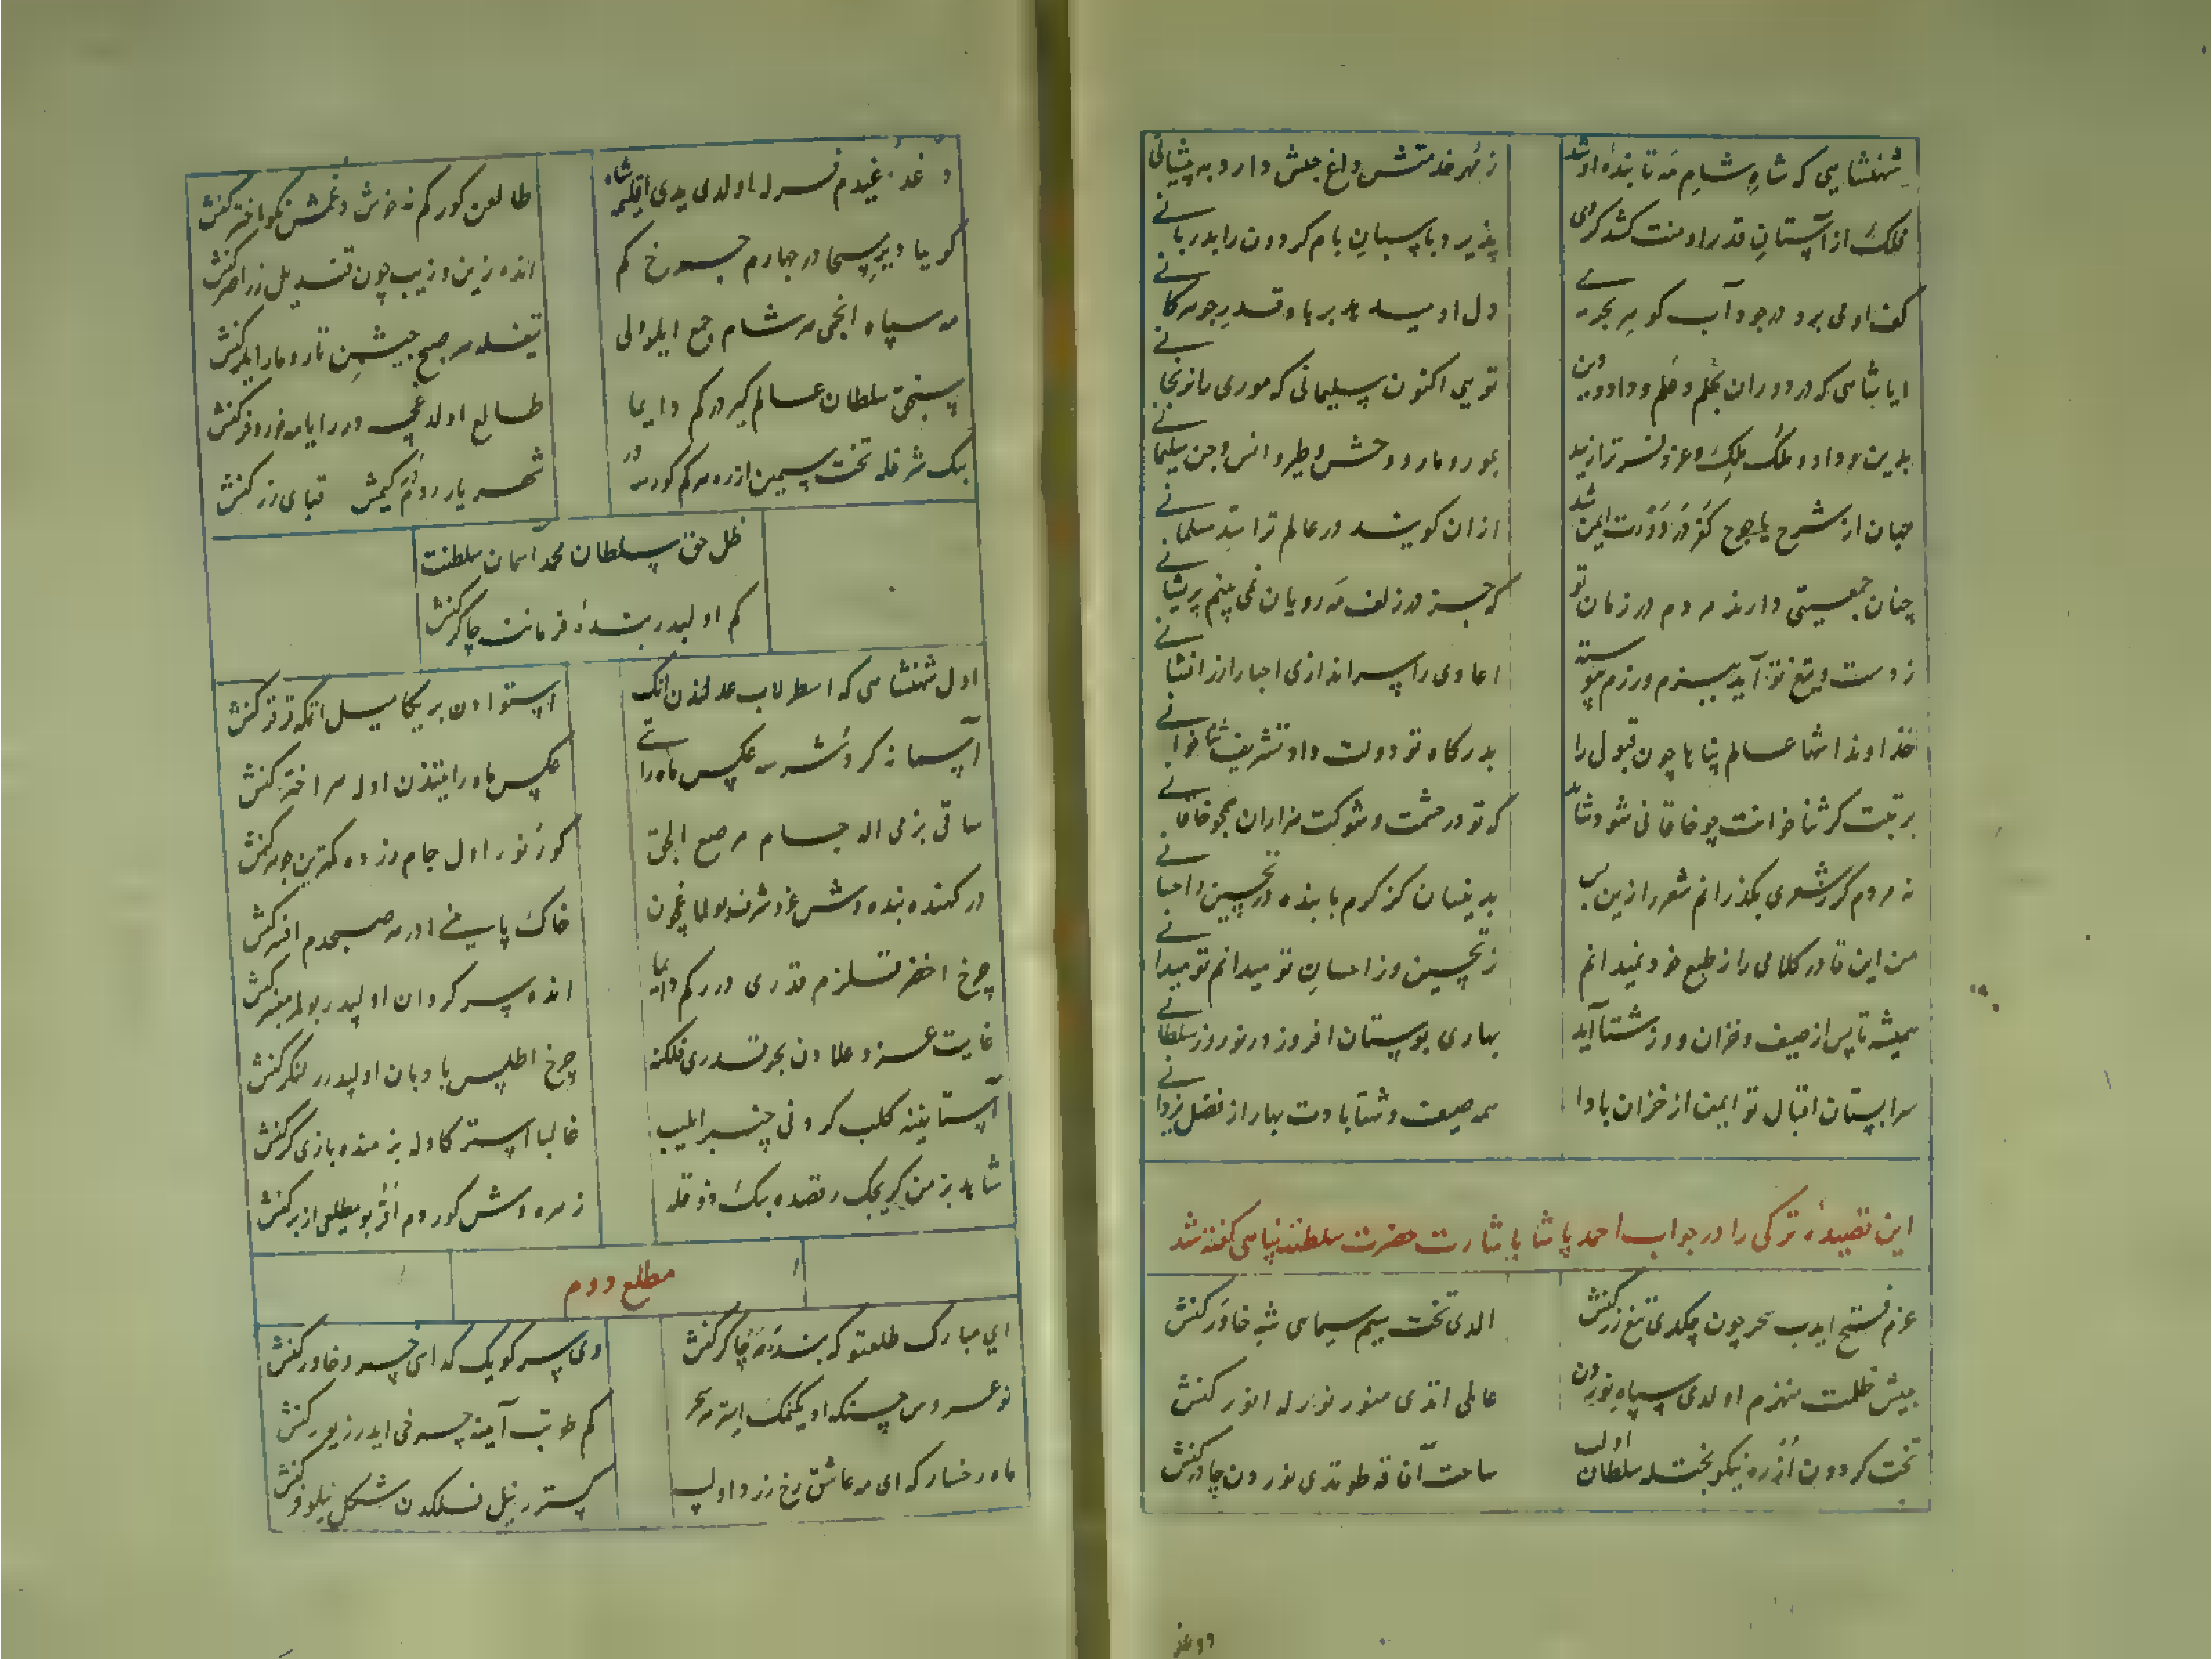 شهنشاهی که شاهِ شامِ مه تا بندهٔ او شد
ز مُهر خدمتش داغ حبش دارد به پیشانی
فلک از آستانِ قدر او منت کشد کردی
پذیرد با پاسبانِ بام کردون را بدربانی
کف اولی برد در جود آب کوهر بحری
دل او میدهد بر باد قدر جوهر کانی
ایا شاهی که در دوران بحلم و علم و داد و دین
تویی اکنون سلیمانی که موری را نرنجانی
بدین و داد و ملک و عز و نصر ترا زیبد
بمور و مار و وحش و طیر و انس و جن سلیمانی
جهان از شرح یاجوج کفر در دورت ایمن شد
از ان کویند در عالم ترا سد مسلمانی
چنان جمعیتی دارند مردم در زمان تو
که جز در زلف مه رویان نمی بینم پریشانی
ز دست و تیغ تو آید ببزم و رزم پیوسته
اعادی را سر اندازی احبا را زر افشانی
خداوندا شها عالم پناها چون قبولی را
بدرکاه تو دولت داد تشریف ثنا خوانی
برتبت کر ثنا خوانت چو خاقانی شود شاید
که تو در حشمت و شوکت هزاران همچو خاقانی
نه مردم کر ز شعری بکذرانم شعر را زین پس
بدینسان کز کرم با بنده در تحسین و احسانی
من این قادر کلامی را ز طبع خود نمیدانم
ز تحسین وز احسانِ تو میدانم تو میدانی
همیشه تا پس از صیف و خزان و وز شتا آید
بهاری بوستان افروز در نوروز سلطانی
سرابستان اقبال تو ایمن از خزان بادا
همه صیف و شتا بادت بهار از فضل یزدانی
این قصیدهٔ ترکی را در جواب احمد پاشا باشارت حضرت سلطنت پناهی کفته شد
عزم فتح ایدب سحر چون چکدی تیغ زر کنش
الدی تخت سیم سیمای شه خاور کنش
جیش ظلمت منهزم اولدی سپاه نوردن
عالمی اتدی منور نور له انور کنش
تخت کردون اُزره نیکو بختله سلطان اولب
ساحت آفاقه طوتدی نوردن چادر کنش
دوغد
دوغدُ غیدم نسرله اولدی یدی اقلیمه شاه
طالعن کور کم نه خوش دوغمش نکو اختر کنش
کویا دیرِ مسیحا در چهارم چرخ کم
انده زین و زیب چون قندیل زر احمر کنش
مه سپاه انجمی هر شام جمع ایلر ولی
تیغله هر صبح جیشین تار و مار ایلر کنش
بختی سلطان عالم کیر در کم دایما
طالع اولدغیچه در رایله فر و فر کنش
بک شرفله تخت سیمین ازره هر کم کورسه در
شهریار روم کیمش قبای زر کنش
ظل حق سلطان محمد آسمان سلطنت
کم اولبدر بندهٔ فرمانت چاکر کنش
اول شهنشاهی که اسطرلاب عدلندن انک
استوادن بر یکا میل اتمکه قرقر کنش
ساقی بزمی اله جام مرصع الجق
کورنور اول جام وزده کمترین جوهر کنش
درکهنده بنده وش عز و شرف بولماغچون
خاک پاینی ادر هر صبحدم افسر کنش
چرخ اخضر قلزم قدری درر کم دایما
انده سرکردان اولبدر بولمز معبر کنش
غایت عز و علادن بحر قدری فلکنه
چرخ اطلس بادبان اولبدر لنکر کنش
آستاننه کلب کردنی چنبر ایلیب
غالبا استر کاوله بزمنده بازی کر کنش
شاه بزمن کریجک رقصده بک ذوقله
زهره وش کوردم اُقُر بو مطلعی ازبر کنش
مطلع دوم
ای مبارک طلعتوکه بنده مه چاکر کنش
وی سر کویک کدای خسرو خاور کنش
نو عروس حسنکه اویکنمک ایستر هر سحر
کم طوتب آینه چرخی ایدر زیور کنش
ماه رخسارکه ای مه عاشق رخ زرد اولب
کستر رنیل فلکدن شکل نیلوفر کنش